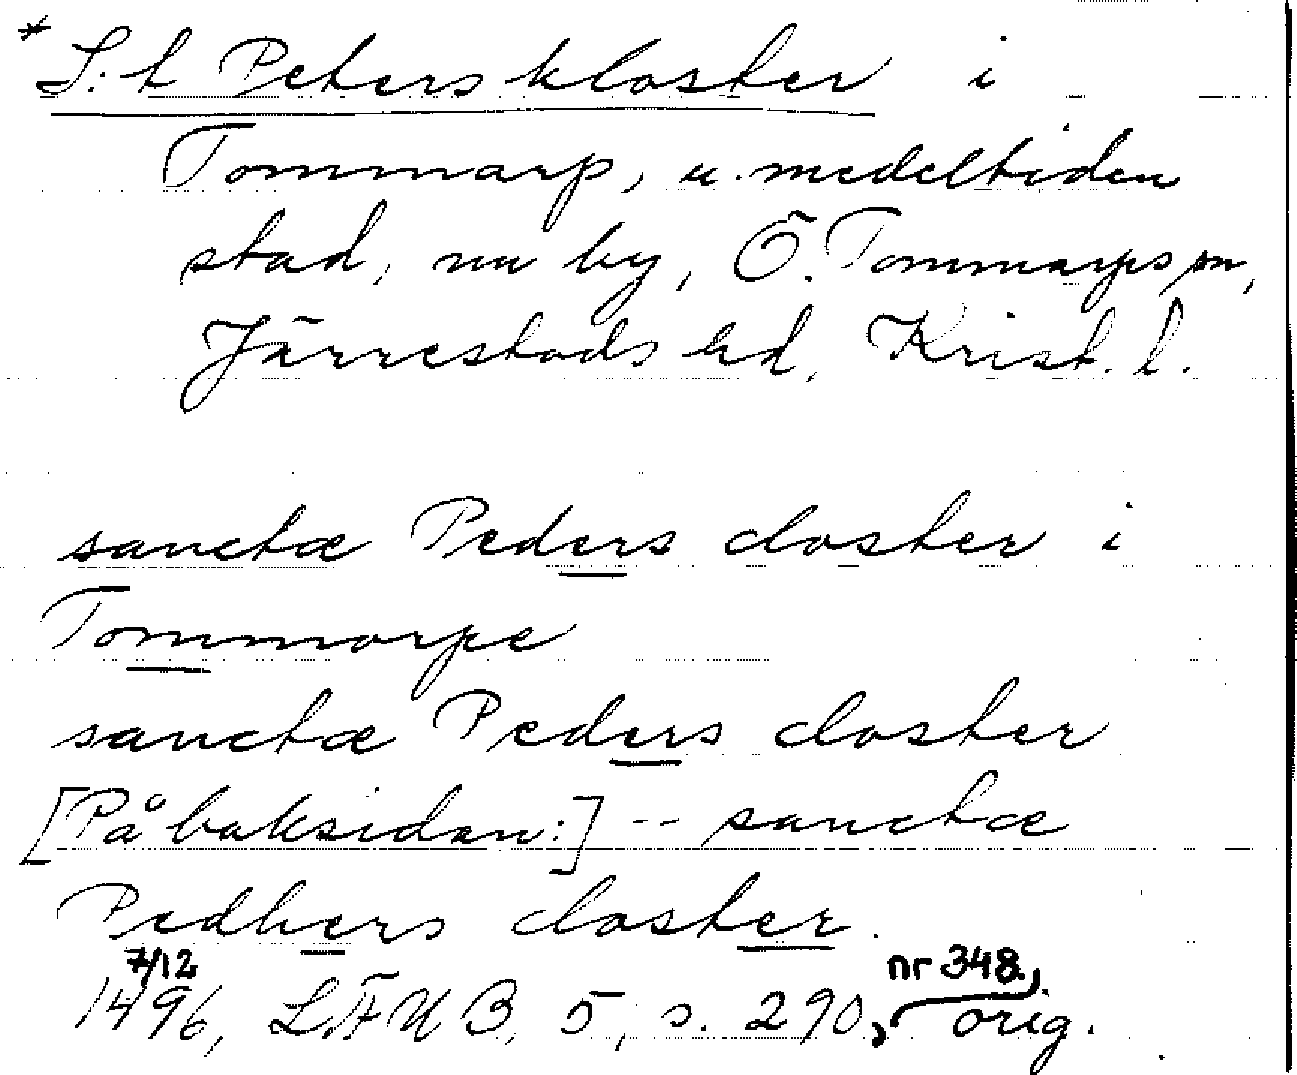 * S:t Peters kloster i
Tommarp, u. medeltiden
stad, nu by, Ö. Tommarps sn,
Järrestads hd, Krist. l.
sanctæ Peders closter i
Tommorpe
sanctæ Peders closter
[På baksidan:] -- sanctæ
Pedhers closter.
7/12 nr 348,
1496, LÄUB, 5, s. 290, orig.